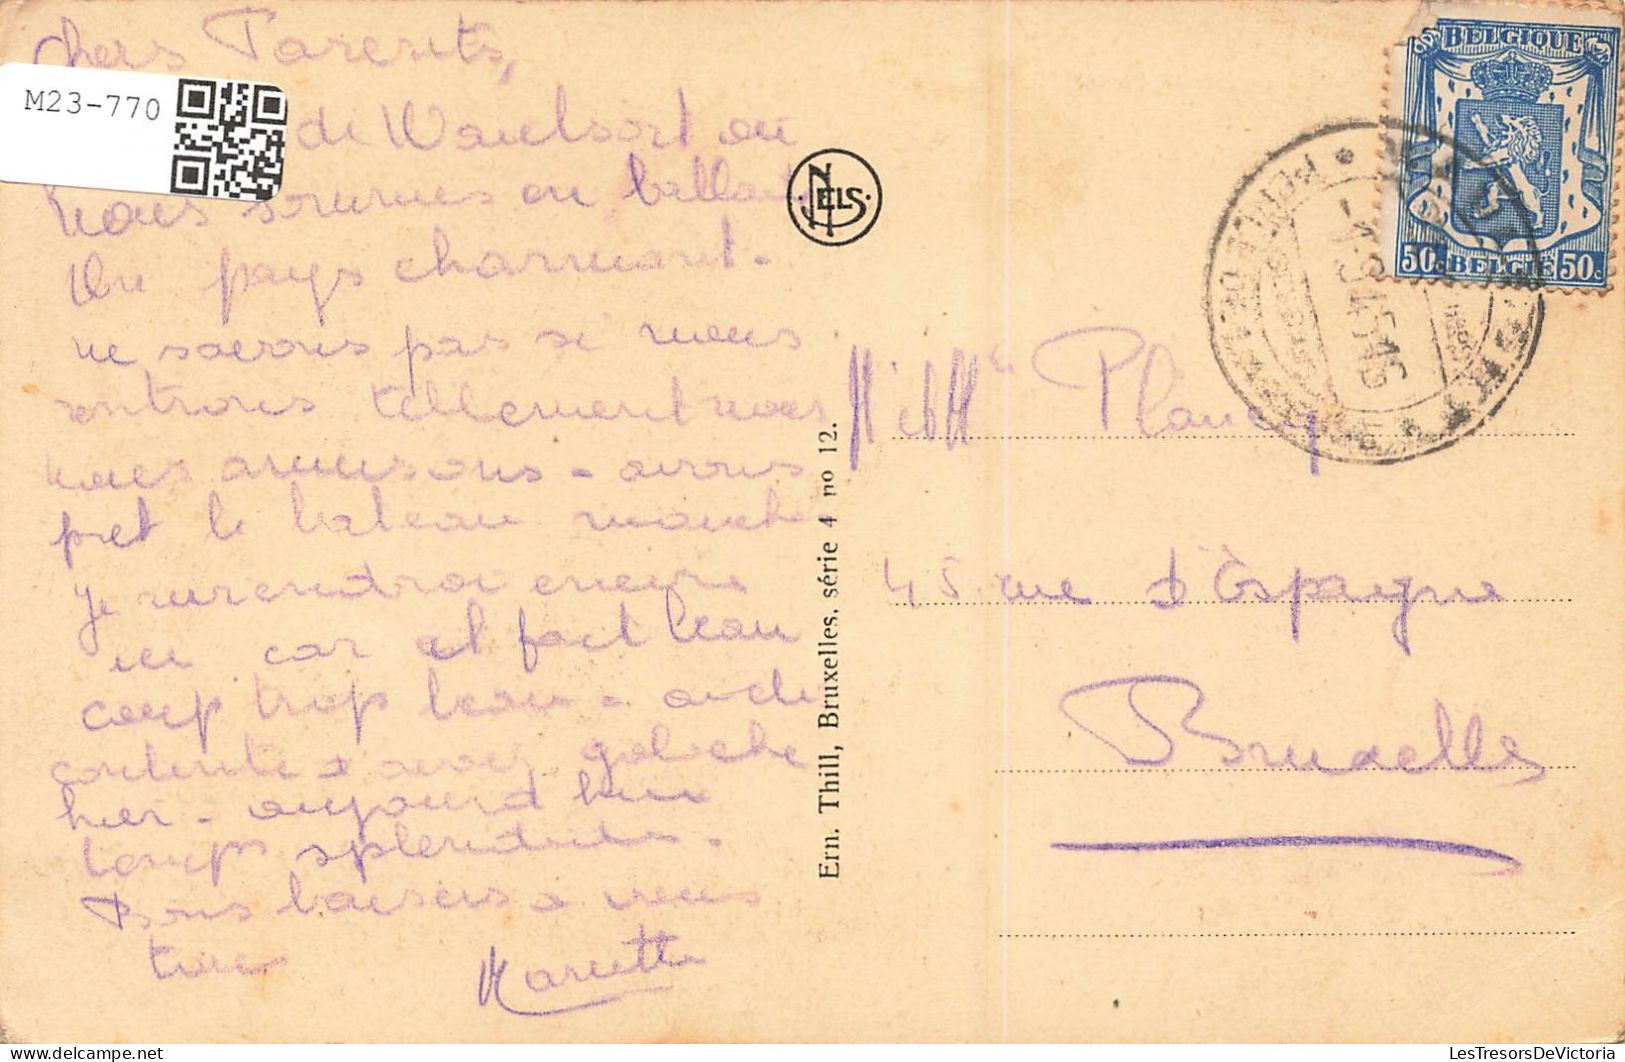 Chers Parents,
M23-770
de Waulsort où
nous sommes en ballade
Un pays charmant.
ne savons pas si nous
rentrons tellement nous
nous amusons - avons
pret le bateau mouche
je reviendrai encore
ici car il fait beau
coup trop beau - 
contente d'avoir galoche
hier - aujourd'hui
temps splendide.
Bons baisers a vous
tous
Mariette
NELS.
Ern. Thill, Bruxelles, série 4 no 12.
BELGIQUE
50c BELGIE 50c
Mr et Mme Plancq
45 rue d'Espagne
Bruxelles
LesTresorsDeVictoria